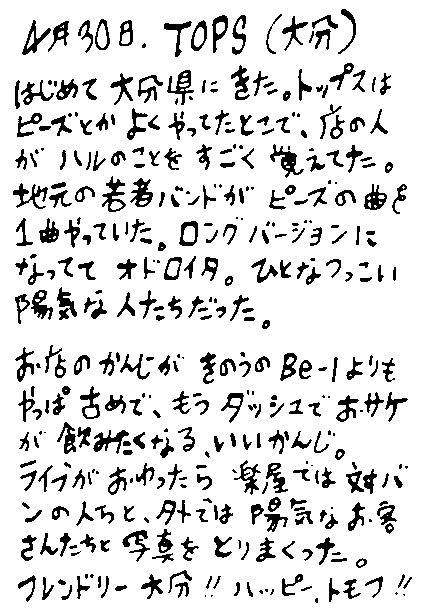 4月30日. TOPS (大分)
はじめて大分県にきた。トップスは
ピーズとかよくやってたとこで、店の人
がハルのことをすごく覚えてた。
地元の若者バンドがピーズの曲を
1曲やっていた。ロングバージョンに
なってて オドロイタ。ひとなつっこい
陽気な人たちだった。
お店のかんじが きのうのBe-1よりも
やっぱ古めで、もうダッシュでおサケ
が飲みたくなる、いいかんじ。
ライブがおわったら 楽屋では対バ
ンの人らと、外では陽気なお客
さんたちと写真をとりまくった。
フレンドリー大分!! ハッピー、トモフ!!